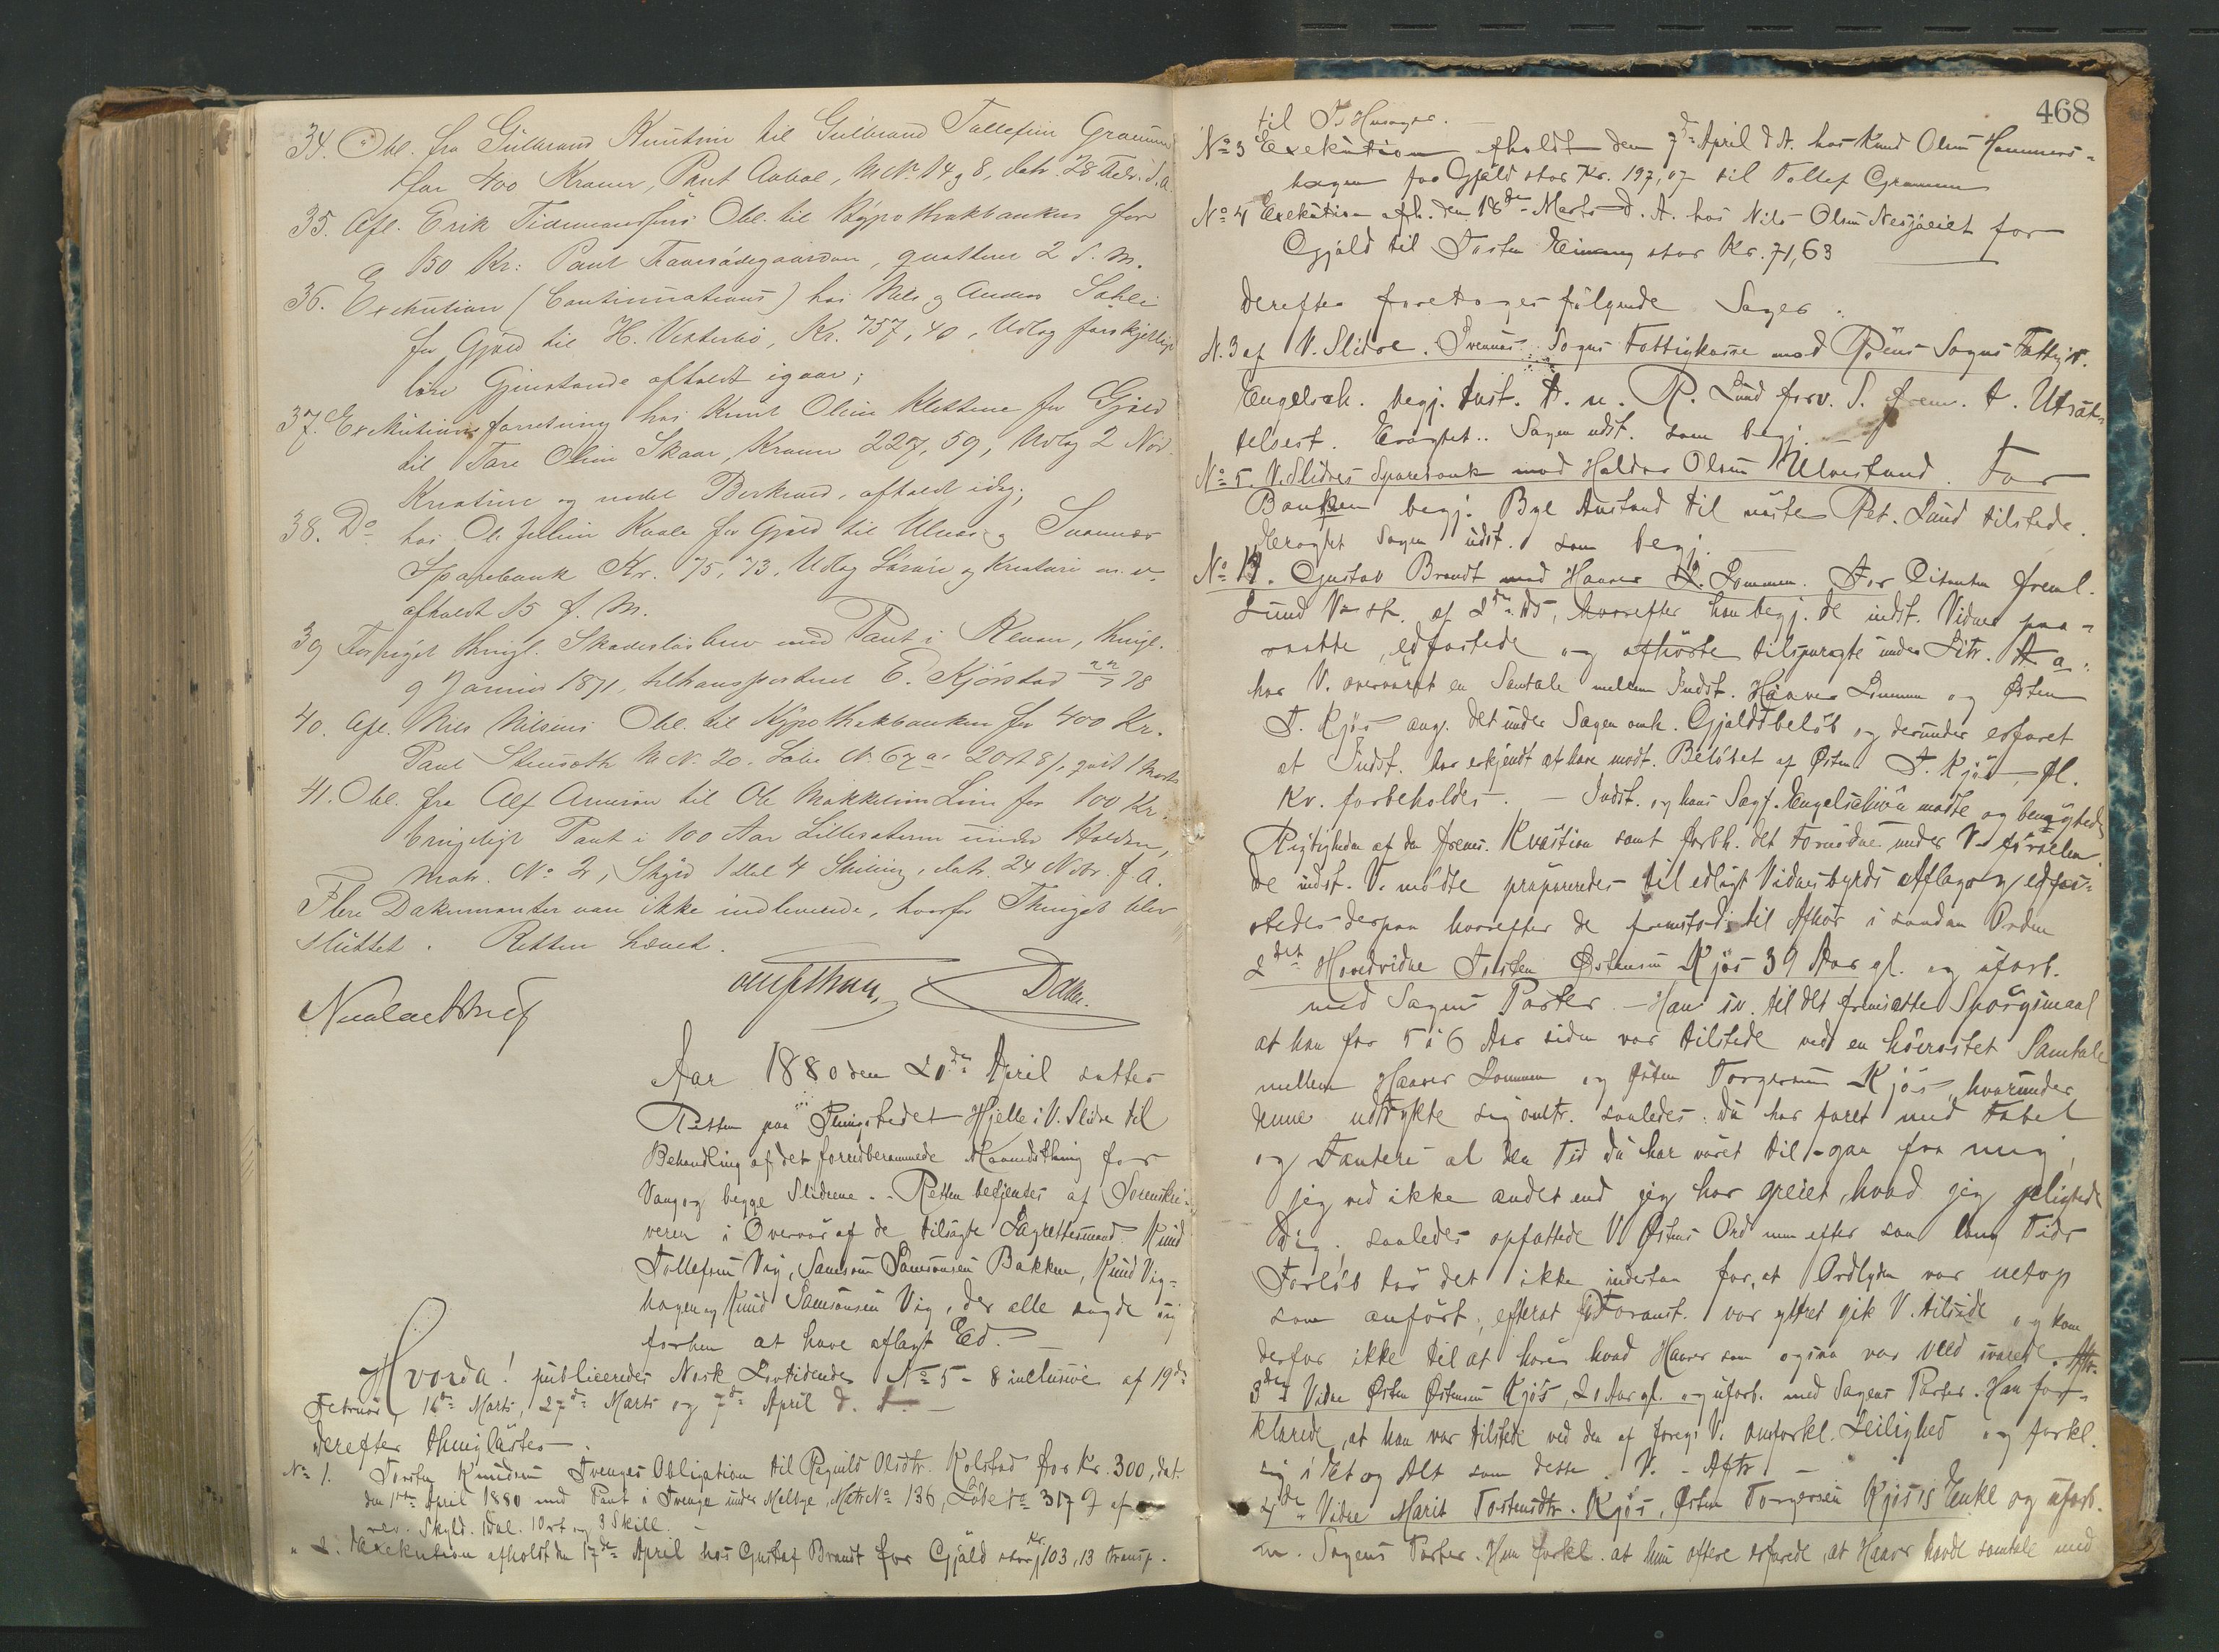 34. Obl. fra Gulbrand Knutsen til Gulbrand Tollefsen
for 400 Kroner, Pant Aabol, M. No. 14 g 8, datr. 28 Febr. d. a.
35. Afl. Erik Tidemandsens Obl. til Hypothekbanken for
150 Kr: Pant
36. Exekution (Continuations) hos Nils og Anders
for Gjæld til H. Vesterbö, Kr. 757,40, Udlog forskjellige
löse Gjenstande afholdt igaar;
37. Exekutionsforretning hos Knut Olsen Klettene for Gjæld
til Tore Olsen Skaar, Kroner 227,59, Udlog 2 Nöd
Kreature og andet Berkved, afholdt idag;
38. Do hos Ole Kvale for Gjæld til Ulnæs og Svennæs
Sparebank Kr. 75,73. Udlog Lösöre og Kreature m. v.
afholdt 15 d. M.
39 thingl. Skadeslösbrev med Pant i thingl.
9 Januar 1871, tiltransporteret E. Kjörstad 78
40. Afl. Nils Nilsens Obl. til Hypothekbanken for 400 Kr.
Pant M. No. 20. Löbe No. 67 a 20 rt 8 ß, qvit 1 Marts
41. Obl. fra Alf Arneson til Ole for 100 Kr.
Pant i 100 Aar under Halden,
Matr. No. 2, Skyld 1 dal 4 Skilling, datr. 24 Novbr. f. A.
Flere Dokumenter var ikke indleverede, hvorfor Thinget blev
sluttet. Retten hævet.
Aar 1880 den 20de April sattes
Retten paa Thingstedet Hjelle i V. Slidre til
Behandling af det forudberammede Maanedsthing for
Vang og begge Slidrene. - Retten betjentes af Sorenskri-
veren i Overvær af de tilsagte Lagrettesmænd Knud
Tollefsen Vig, Samson Samsonsen Bakken, Knud Vig-
hagen og Knud Samsonsen Vig, der alle sagde sig
forhen at have aflagt Ed. —
Hvorda! publiceredes Norsk Lovtidende No 5 - 8 inclusive af 19de
Februar, 16de Marts, 27de Marts og 7de April d. A. —
Derefter thinglæstes
No 1. Torsten Knudsen Tvenges Obligation til Ragnild Olsdtr. Kolstad for Kr. 300, dat.
den 1ste April 1880 med Pant i Tvenge under Melbye, Matr No 136, Löbe No 317 af
rev. Skyld. 1 Dal. 10 rt. og 3 Skill. —
" 2. Exekution afholdt den 17de April hos Gustaf Brandt for Gjæld stor Kr. 103,13 transp.
468
til
No 3 Exekution afholdt den 7de April d A. hos Knud Olsen Hammers-
hagen for Gjæld stor Kr. 197,07 til Tollef
No 4 Exekution afh. den 18de Marts d. A. hos Nils Olsen for
Gjæld til Torsten Einang stor Kr. 71,63
Derefter foretoges fölgende Sager:
N. 3 af V. Slidre. Svennæs Sogns Fattigkasse mod Röens Sogns Fattigv.
Engelsch. begj. Anst. t. n. R. Lund forv. S. frem. t. Udsæt-
telsest. Eragtet.. Sagen udst. som begj. —
No 5. V. Slidres Sparebank mod Haldor Olsen Ulvestand. For
Banken begj. Bye Anstand til næste Ret. Lund tilstede.
Eragtet Sagen udst. som begj.
No 19. Gustav Brandt mod Haaver Lommen. For Citanten freml.
Lund V. st. af ds, hvorefter han begj. de indst. Vidner paa-
raabte, edfæstede og afhörte tilspurgte under Litr. A a:
har V. overværet en Samtale mellem Indst. Haaver Lommen og Østen
T. Kjös ang. det under Sagen omh. Gjældsbelöb og derunder erfaret
at Indst. har erkjendt at have modt. Belöbet af Østen T. Kjös. Fl.
Kv. forbeholdes. — Indst. og hans Sagf. Engelschiön mödte og benægtede
Rigtigheden af den frems. Kvæstion samt forbh. det Fornödne under V. förselen.
De indst. V. mödte præpareredes til edligt Vidnesbyrds Aflæg og edfæs-
stedes derpaa hvorefter de fremstod til Afhör i saadan Orden
2det Hovedvidne Torsten Østensen Kjös 39 Aar gl. og ubesl.
med Sagens Parter. — Han sv. til det fremsatte Spörgsmaal
at han for 5 à 6 Aar siden var tilstede ved en höiröstet Samtale
mellem Haaver Lommen og Østen Torgersen Kjös, hvorunder
denne udtrykte sig omtr. saaledes: du har faret med Fabel
og Fanteri al den Tid du har været til-gaa fra mig,
jeg ved ikke andet end jeg har greiet, hvad jeg pligtede
Dig; saaledes opfattede V. Østens Ord men efter saa lang Tids
Forlöb tör det ikke indestaa for, at Ordlyden var netop
som anfört; efterat Foranst. var yttret gik V. tilside og kom
derfor ikke til at höre hvad Haaver som ogsaa var vred svarede. Aftr.
3die Vidne Østen Østensen Kjös, 21 Aar gl. og ubesl. med Sagens Parter. Han for-
klarede, at han var tilstede ved den af foreg: V. omforkl. Leilighed og forkl.
sig i Et og Alt som dette V. - Aftr. —
4de Vidne Marit Torstensdtr. Kjös, Østen Torgersen Kjös's Enke og ubesl.
m. Sagens Parter. Hun forkl. at hun oftere erfarede, at Haaver havde samtale med